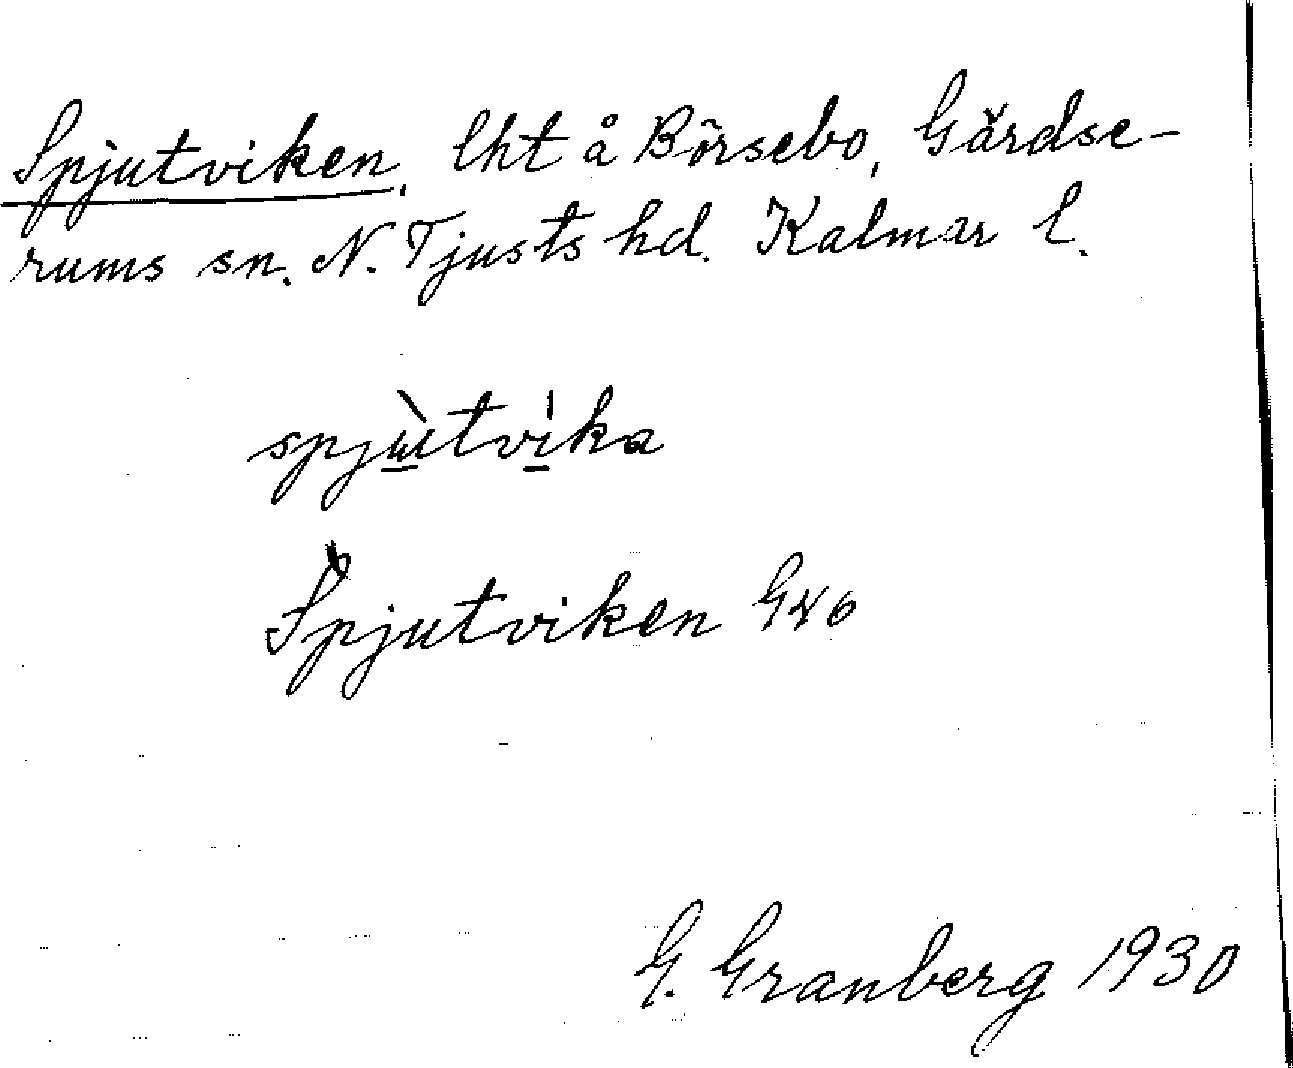 Spjutviken, lht å Börsebo, Gärdse-
rums sn. N. Tjusts hd. Kalmar l.
spjùtvi̍ka
Spjutviken
G. Granberg 1930